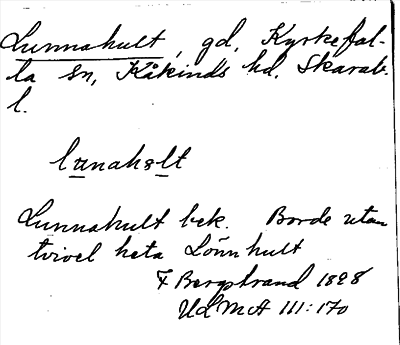 Lunnahult, gd, Kyrkefal-
la sn, Kåkinds hd. Skarab.
l.
lunahult
Lunnahult bek. Borde utan
tvivel heta Lönnhult
F Bergstrand 1898
UdMA III:170